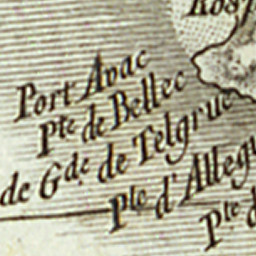 Ros
Port Avac
Pte de Bellec
de Gde de Telgruc
Pte d'Alleg
Pte d